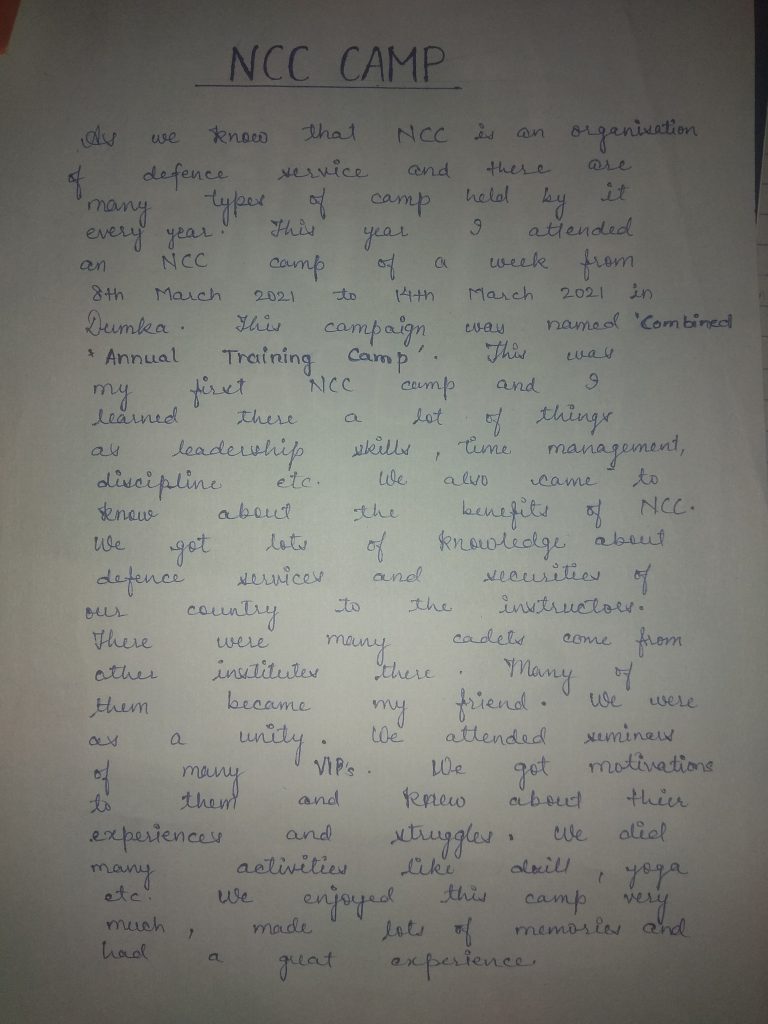 NCC CAMP
As we know that NCC is an organisation
of defence service and there are
many types of camp held by it
every year. This year I attended
an NCC camp of a week from
8th March 2021 to 14th March 2021 in
Dumka. This campaign was named 'Combined
' Annual Training Camp'. This was
my first NCC camp and I
learned there a lot of things
as leadership skills, time management,
discipline etc. We also came to
know about the benefits of NCC.
We got lots of knowledge about
defence services and securities of
our country to the instructors.
There were many cadets come from
other institutes there. Many of
them became my friend. We were
as a unity. We attended seminars
of many VIP's. We got motivations
to them and knew about their
experiences and struggles. We did
many activities like drill, yoga
etc. We enjoyed this camp very
much, made lots of memories and
had a great experience.